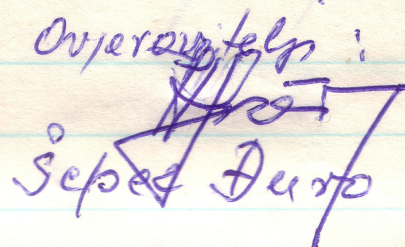 Ovjerovitelj :
Šepec Đuro